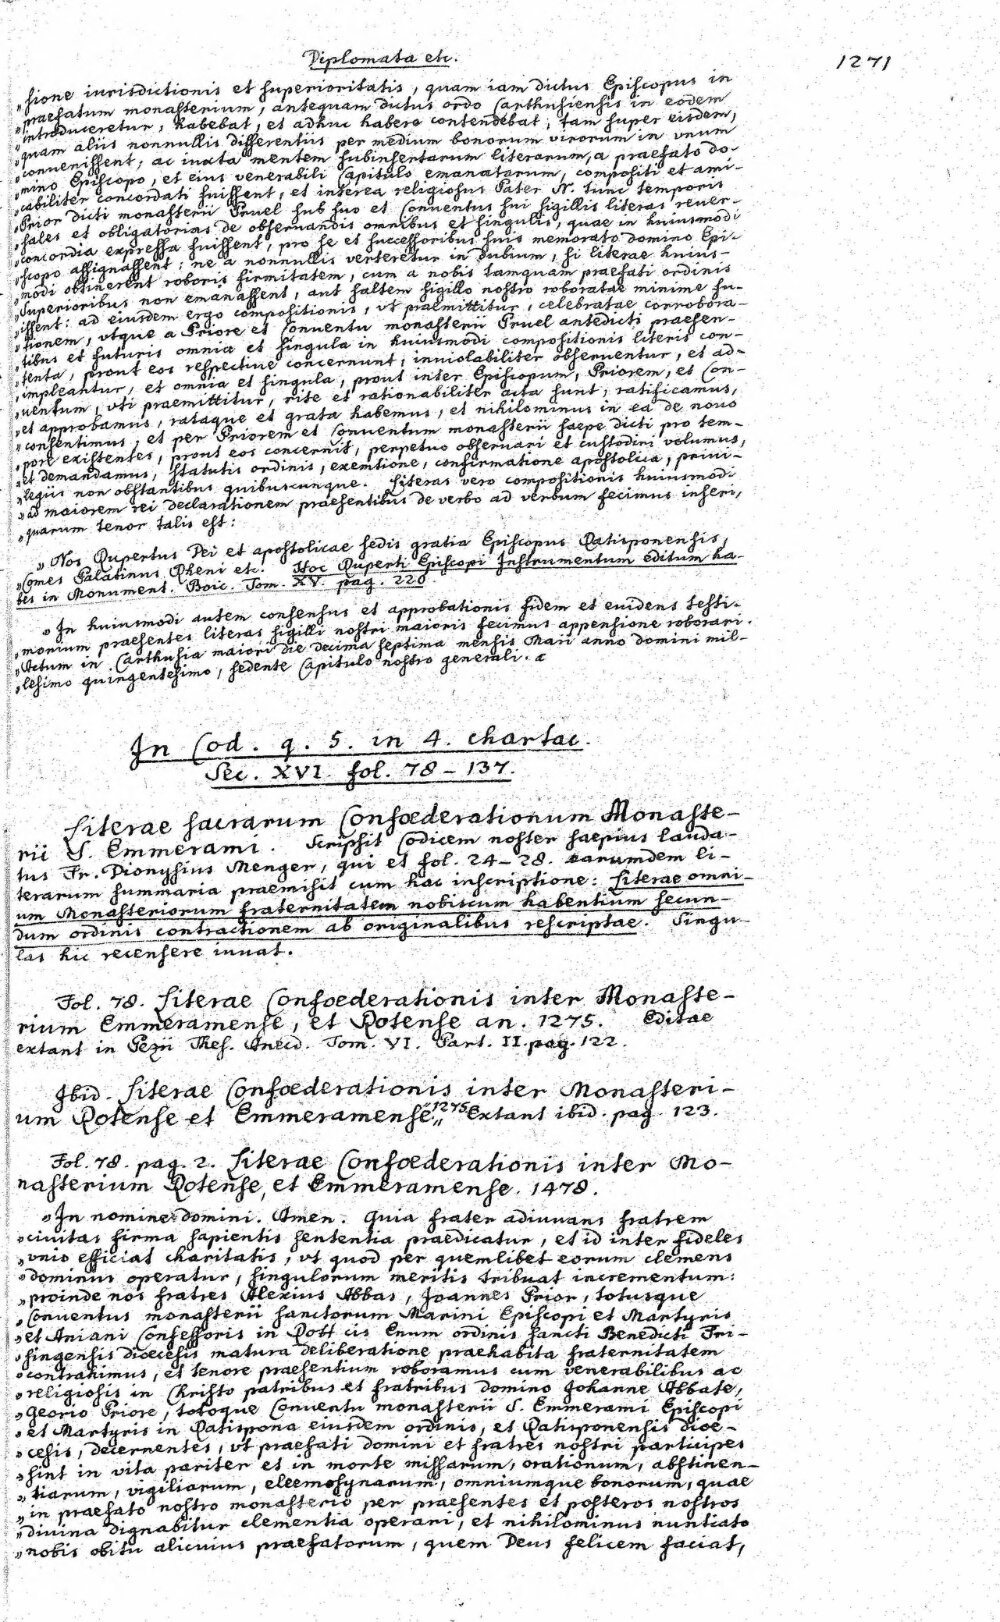 Diplomata etc. 1271
„sione iurisdictionis et superioritatis, quam iam dictus Episcopus in
„praefatum monasterium, antequam dictus ordo Carthusiensis in eodem
„introduceretur, habebat, et adhuc habere contendebat, tam super eisdem,
„quam aliis nonnullis differentiis per medium bonorum virorum in unum
„convenissent, ac iuxta mentem subinsertarum literarum, a praefato do-
„mino Episcopo, et eius venerabili Capitulo emanatarum, compositi et ami-
„cabiliter concordati fuissent, et interea religiosus Pater N. tunc temporis
„Prior dicti monasterii Pruel sub suo et Conventus sui sigillis literas rever-
„sales et obligatorias de observandis omnibus et singulis, quae in huiusmodi
„concordia expressa fuissent, pro se et successoribus suis memorato domino Epi-
„scopo assignassent; ne a nonnullis verteretur in dubium, si literae huius-
„modi obtinerent roboris firmitatem, cum a nobis tamquam praefati ordinis
„superioribus non emanassent, aut saltem sigillo nostro roboratae minime fu-
„issent: ad eiusdem ergo compositionis, vt praemittitur, celebratae corrobora-
„tionem, vtque a Priore et Conventu monasterii Pruel antedicti praesen-
„tibus et futuris omnia et singula in huiusmodi compositionis literis con-
„tenta, prout eos respective concernunt, inviolabiliter observentur, et ad-
„impleantur, et omnia et singula, prout inter Episcopum, Priorem, et Con-
„uentum, vti praemittitur, rite et rationabiliter acta sunt, ratificamus,
„et approbamus, rataque et grata habemus, et nihilominus in ea de novo
„consentimus, et per Priorem et Conventum monasterii saepe dicti pro tem-
„pore existentes, prout eos concernit, perpetuo observari et custodiri volumus,
„et demandamus, statutis ordinis, exemtione, confirmatione apostolica, privi-
„legiis non obstantibus quibuscunque. Literas vero compositionis huiusmodi
„ad maiorem rei declarationem praesentibus de verbo ad verbum fecimus inseri,
„quarum tenor talis est:
„Nos Rupertus Dei et apostolicae sedis gratia Episcopus Ratisponensis,
„Comes Palatinus Rheni etc. Hoc Ruperti Episcopi Instrumentum editum ha-
bes in Monument. Boic. Tom. XV. pag. 228.
„In huiusmodi autem consensus et approbationis fidem et euidens testi-
„monium praesentes literas sigilli nostri maioris fecimus appensione roborari.
„Actum in Carthusia maiori die decima septima mensis Maii anno domini mil-
„lesimo quingentesimo, sedente Capitulo nostro generali.
In Cod. q. 5. in 4. chartac.
Sec. XVI. fol. 78-137.
Literae sacrarum Confœderationum Monaste-
rii S. Emmerami. Scripsit Codicem noster saepius lauda-
tus Fr. Dionysius Menger, qui et fol. 24-28. earumdem li-
terarum summaria praemisit cum hac inscriptione: Literae omni-
um Monasteriorum fraternitatem nobiscum habentium secun-
dum ordinis contractionem ab originalibus rescriptae. Singu-
las hic recensere iuvat.
Fol. 78. Literae Confoederationis inter Monaste-
rium Emmeramense, et Rotense an. 1275. Editae
extant in Pezii Thes. Anecd. Tom. VI. Part. II. pag. 122.
Ibid. Literae Confœderationis inter Monasteri-
um Rotense et Emmeramense „1275„ Extant ibid. pag. 123.
Fol. 78. pag. 2. Literae Confœderationis inter Mo-
nasterium Rotense, et Emmeramense. 1478.
„In nomine domini. Amen. Quia frater adiuuans fratrem
„ciuitas firma sapientis sententia praedicatur, et id inter fideles
„vnio efficiat charitatis, vt quod per quemlibet eorum clemens
„dominus operatur, singulorum meritis tribuat incrementum:
„proinde nos fratres Alexius Abbas, Joannes Prior, totusque
„Conuentus monasterii sanctorum Marini Episcopi et Martyris
„et Aniani Confessoris in Rott cis Enum ordinis sancti Benedicti Fri-
„singensis diocesis matura deliberatione praehabita fraternitatem
„contrahimus, et tenore praesentium roboramus cum venerabilibus ac
„religiosis in Christo patribus et fratribus domino Johanne Abbate,
„Georio Priore, totoque Conuentu monasterii S. Emmerami Episcopi
„et Martyris in Ratispona eiusdem ordinis, et Ratisponensis dioe-
„cesis, decernentes, vt praefati domini et fratres nostri participes
„sint in vita pariter et in morte missarum, orationum, abstinen-
„tiarum, vigiliarum, eleemosynarum, omniumque bonorum, quae
„in praefato nostro monasterio per praesentes et posteros nostros
„divina dignabitur clementia operari, et nihilominus nuntiato
„nobis obitu alicuius praefatorum, quem Deus felicem faciat,